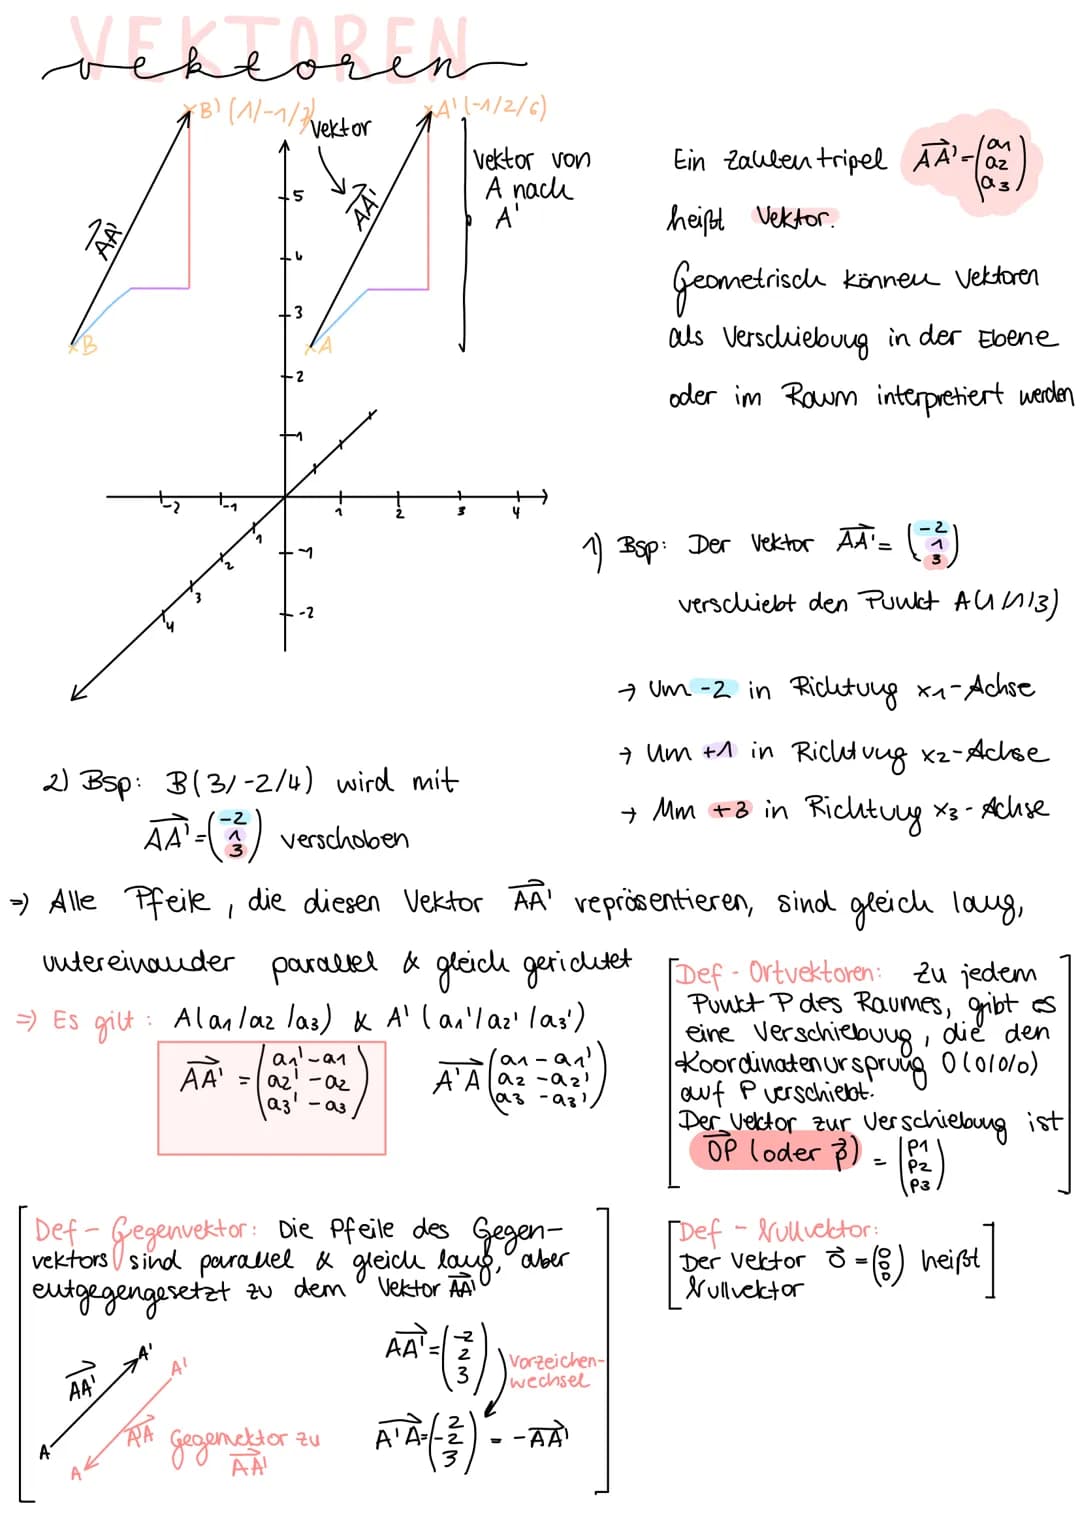 VEKTOREN
vektoren
B' (1/-1/7)
Vektor
A' (-1/2/6)
Vektor von
A nach
A'
AA'
AA'
B
A
5
4
3
2
1
-2
-1
1
2
3
4
1
2
3
4
-1
-2
Ein Zahlentripel AA' = (a1 a2 a3)
heißt Vektor.
Geometrisch können Vektoren
als Verschiebung in der Ebene
oder im Raum interpretiert werden
1) Bsp: Der Vektor AA' = (-2 1 3)
verschiebt den Punkt A(1/1/3)
→ Um -2 in Richtung x1-Achse
→ Um +1 in Richtung x2-Achse
→ Um +3 in Richtung x3-Achse
2) Bsp: B(3/-2/4) wird mit
AA' = (-2 1 3) verschoben
⇒ Alle Pfeile, die diesen Vektor AA' repräsentieren, sind gleich lang,
untereinander parallel & gleich gerichtet
⇒ Es gilt: A(a1/a2/a3) & A' (a1'/a2'/a3')
AA' = (a1'-a1 a2'-a2 a3'-a3)
A'A (a1-a1' a2-a2' a3-a3')
Def - Ortvektoren: Zu jedem
Punkt P des Raumes, gibt es
eine Verschiebung, die den
Koordinatenursprung O(0/0/0)
auf P verschiebt.
Der Vektor zur Verschiebung ist
OP (oder p) = (P1 P2 P3)
Def - Gegenvektor: Die Pfeile des Gegen-
vektors sind parallel & gleich lang, aber
entgegengesetzt zu dem Vektor AA'
AA'
A'
A
A'
A'A
A
Gegenvektor zu
AA'
AA' = (-2 2 3)
Vorzeichen-
wechsel
A'A = (2 -2 3) = -AA'
Def - Nullvektor:
Der Vektor o = (0 0 0) heißt
Nullvektor